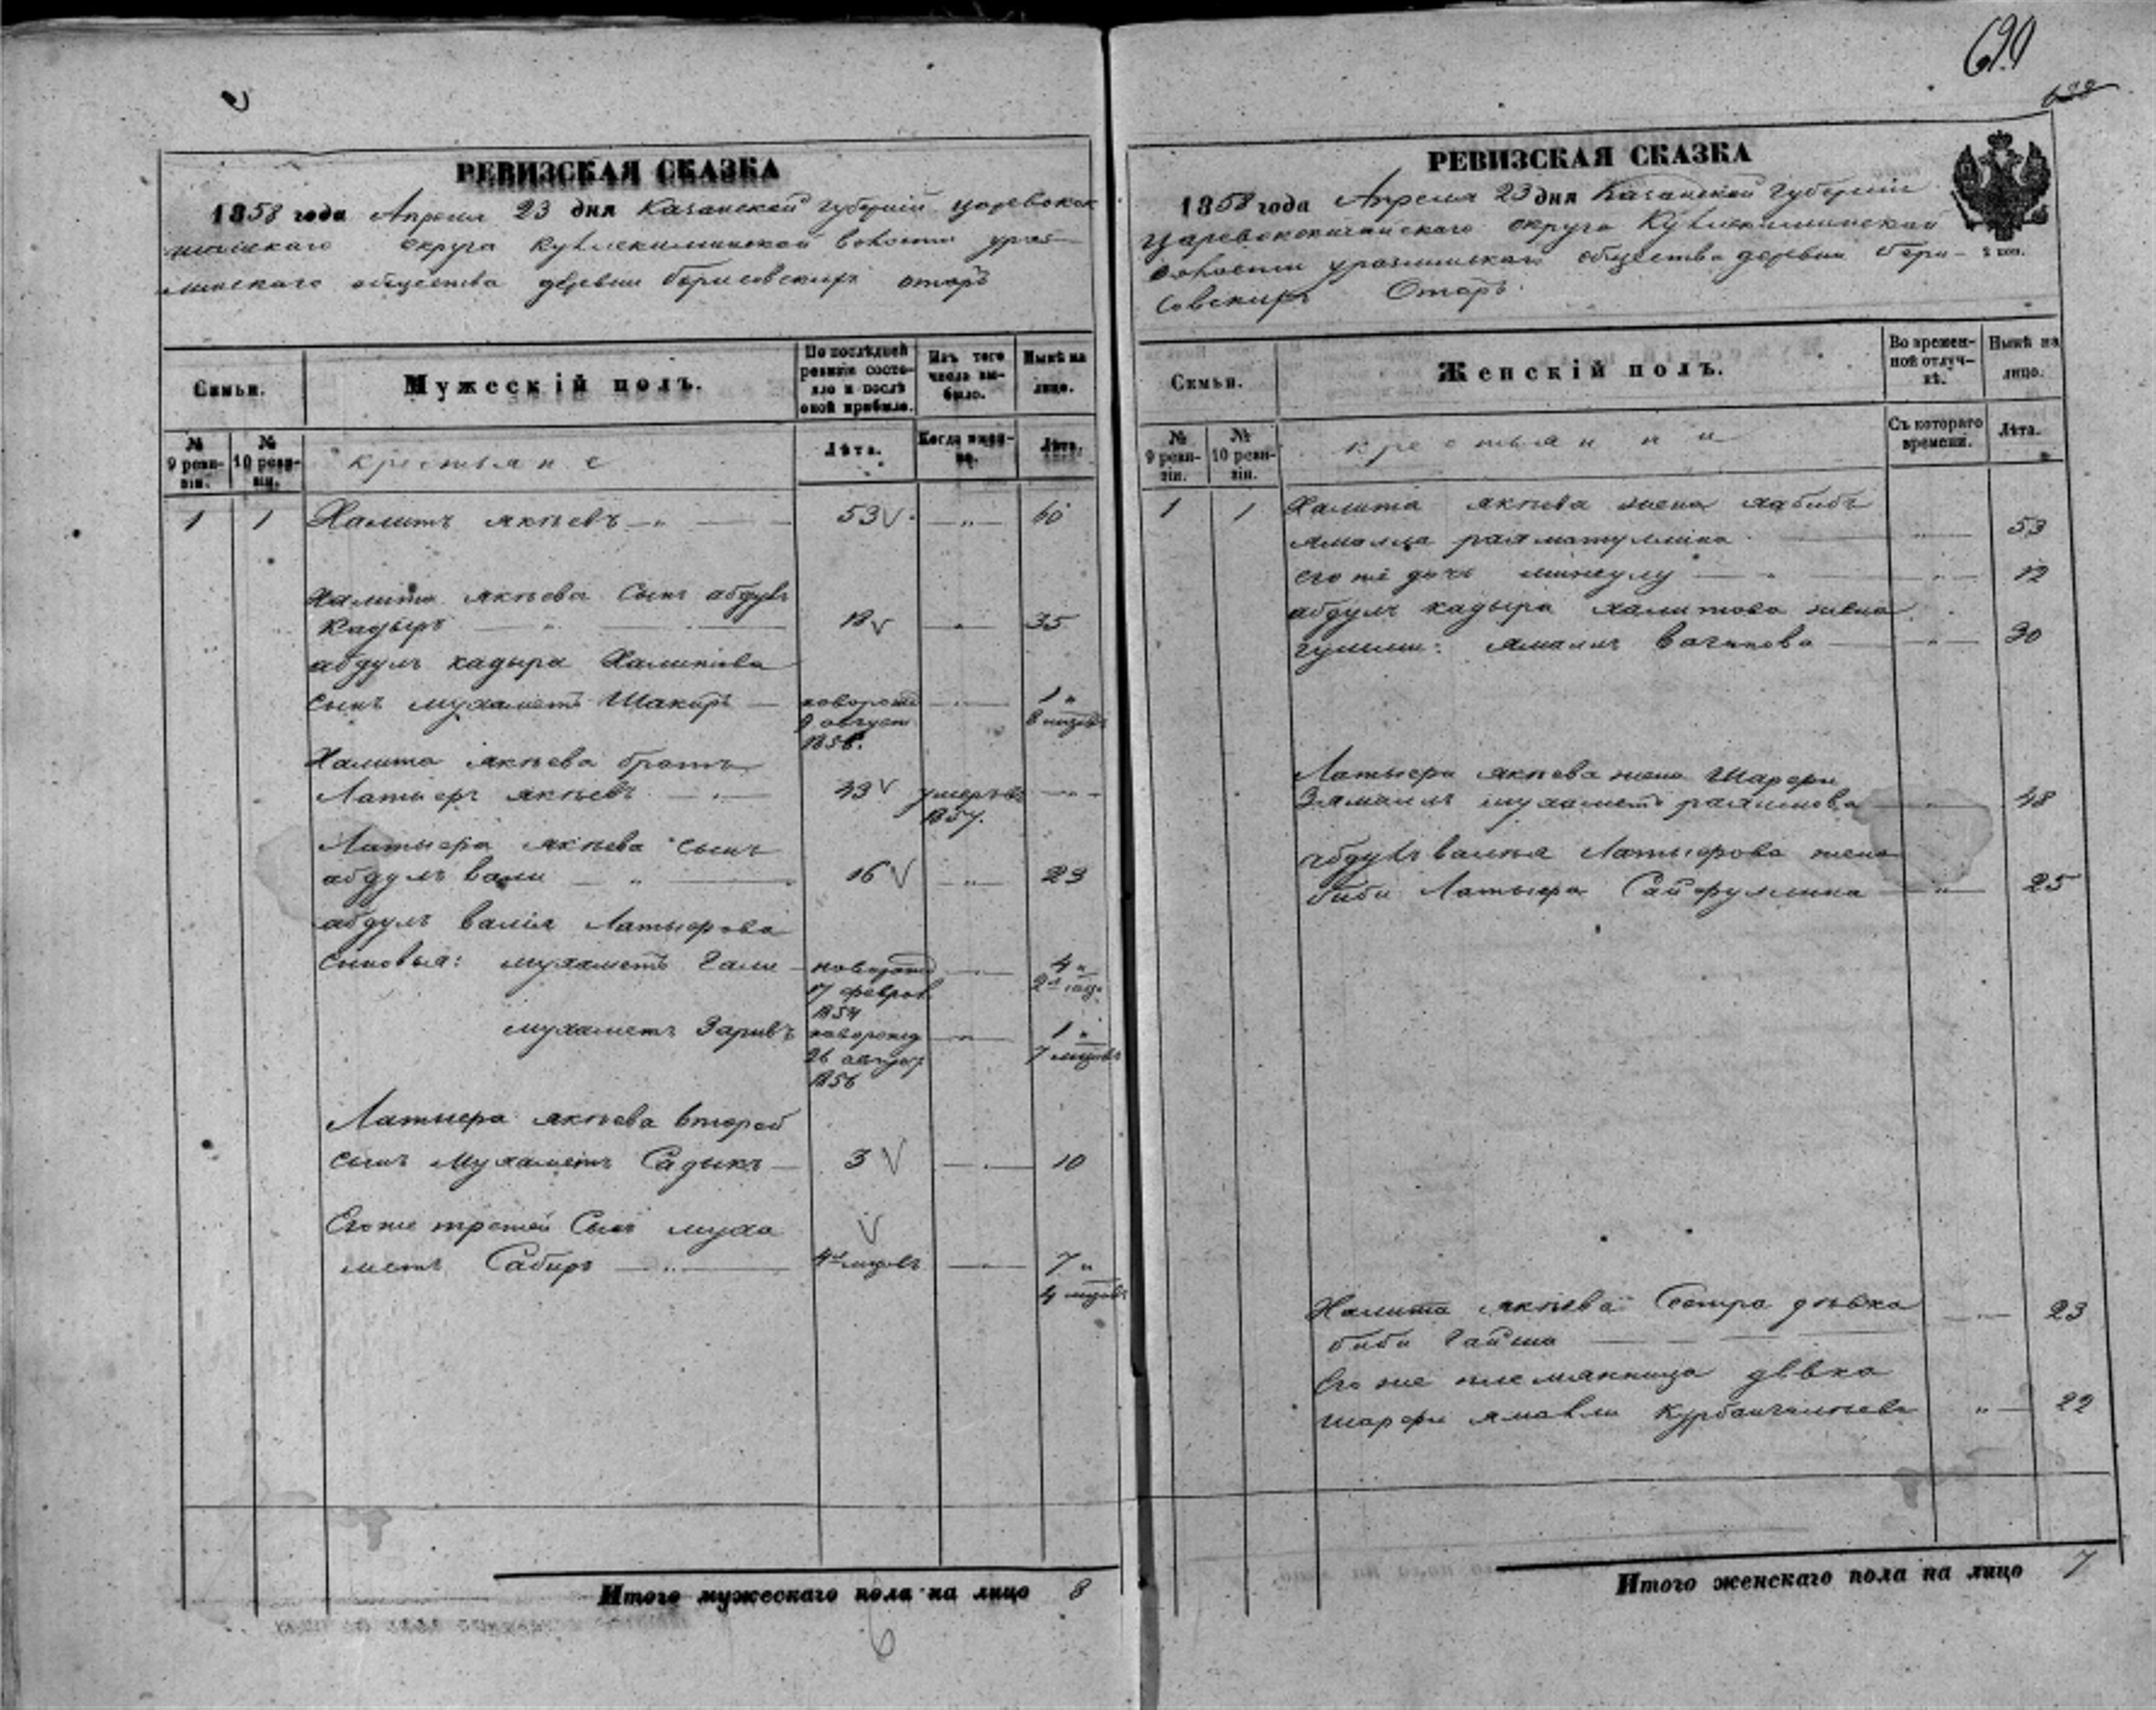 690
РЕВИЗСКАЯ СКАЗКА
1858 года Апреля 23 дня Казанской губернии царевокок
шайскаго округа Кульлекиминской волости ураз-
линскаго общества деревни борисовскихъ отаръ
Семьи.
Мужескій полъ.
По послѣдней ревизіи состояло и послѣ оной прибыло.
Изъ того числа выбыло.
Нынѣ на лицо.
№ 9 ревизіи.
№ 10 ревизіи.
крестьяне
Лѣта.
Когда именно.
Лѣта.
1 1 Халитъ якѣевъ 53 60
Халита якѣева Сынъ абдулъ
Кадыръ 18 35
абдулъ кадыра Халитова
сынъ мухаметъ Шакиръ новорожд 1
9 август 8 мѣсяцъ
1856.
Халита якѣева братъ
Латыфъ якѣевъ 43 умеръ въ
1857.
Латыфа якѣева сынъ
абдулъ вали 16 23
абдулъ валія Латыфова
сыновья: мухаметъ Гали новорожд 4
17 феврал 2
1854
мухаметъ Зарифъ новорожд 1
26 август 7 мѣсяцъ
1856
Латыфа якѣева второй
сынъ Мухаметъ Садыкъ 3 10
Его же третей Сынъ муха
метъ Сабиръ 4 мѣсяцъ 7
4 мѣсяцъ
Итого мужескаго пола на лицо 8
6
РЕВИЗСКАЯ СКАЗКА
1858 года Апреля 23 дня Казанской Губерніи
Царевококшайскаго округа Кульлекиминской
волости уразлинскаго общества деревни бори-
совскихъ Отаръ.
2 коп.
Семьи.
Женскій полъ.
Во временной отлучкѣ.
Нынѣ на лицо.
№ 9 ревизіи.
№ 10 ревизіи.
крестьянки
Съ котораго времени.
Лѣта.
1 1 Халита якѣева жена хабибъ
ямалца рахматуллина 53
его же дочь минкулу 12
абдулъ кадыра халитова жена
гулими: ямалъ 30
Латыфа якѣева жена Шарфи
Зямалъ мухаметъ рахимова 48
абдулъ валія Латыфова жена
биби Латыфа Сайфуллина 25
Халита якѣева Сестра дѣвка 23
биби Гайша
Его же племянница дѣвка
шарфи ямали 22
Итого женскаго пола на лицо 7